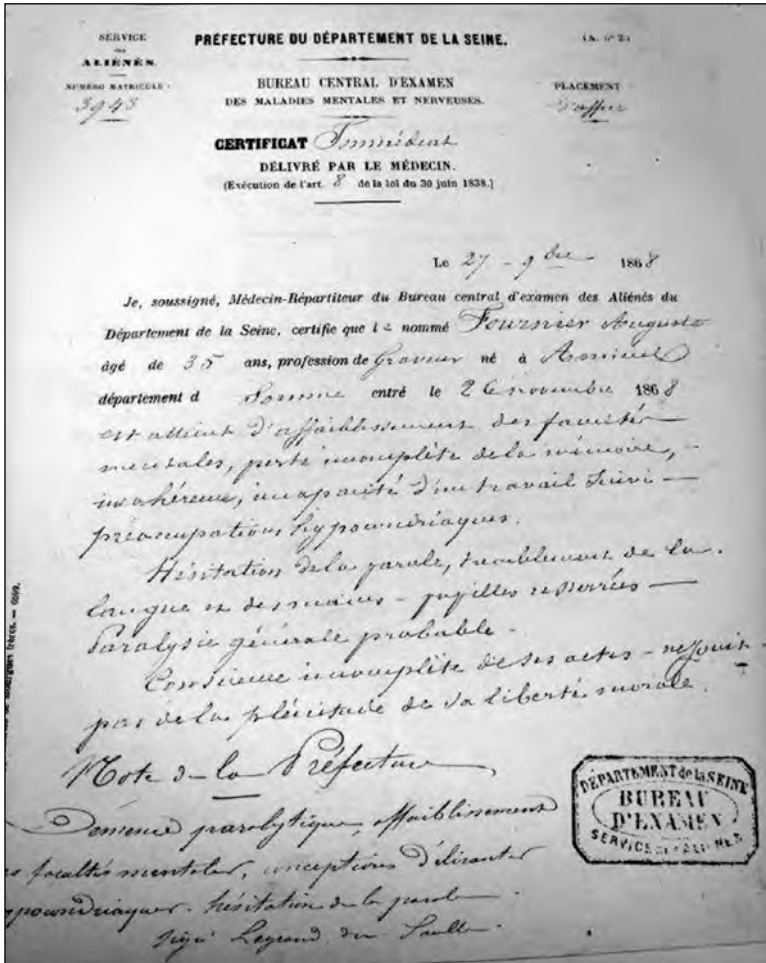 SERVICE
des
ALIÉNÉS.
NUMÉRO MATRICULE :
3943
PRÉFECTURE DU DÉPARTEMENT DE LA SEINE.
BUREAU CENTRAL D'EXAMEN
DES MALADIES MENTALES ET NERVEUSES.
(A. n° 2.)
PLACEMENT
d'office
CERTIFICAT Immédiat
DÉLIVRÉ PAR LE MÉDECIN.
(Exécution de l'art. 8 de la loi du 30 juin 1838.)
Le 27 - 9bre 1868
Je, soussigné, Médecin-Répartiteur du Bureau central d'examen des Aliénés du
Département de la Seine, certifie que le nommé Fournier Auguste
âgé de 35 ans, profession de Graveur né à
département d Somme entré le 26 novembre 1868
est atteint d'affaiblissement des facultés
mentales, perte incomplète de la mémoire,
incohérence, incapacité d'un travail suivi —
préoccupations hypocondriaques.
Hésitation de la parole, tremblement de la
langue et des mains - pupilles resserrées —
Paralysie générale probable -
Conscience incomplète de ses actes - ne jouit
pas de la plénitude de sa liberté morale.
Note de la Préfecture
Démence paralytique, affaiblissement
facultés mentales, conceptions délirantes
hésitation de la parole
signé Legrand du Saulle
DÉPARTEMENT de la SEINE
BUREAU
D'EXAMEN
SERVICE des ALIÉNÉS
frères. — 6099.